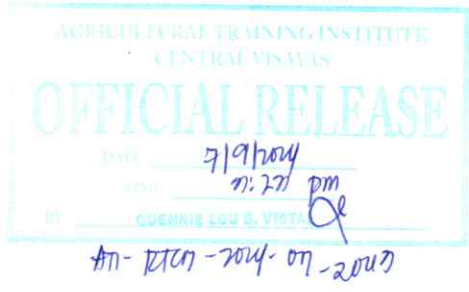 AGRICULTURAL TRAINING INSTITUTE
CENTRAL VISAYAS
OFFICIAL RELEASE
DATE 7/9/2024
TIME pm
BY QUENNIE LOU B. VISTAL